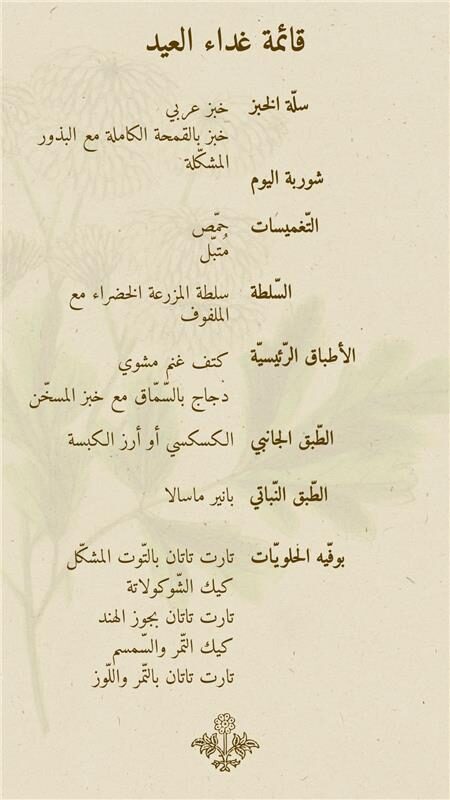 قائمة غداء العيد
سلّة الخبز
خبز عربي
خبز بالقمحة الكاملة مع البذور
المشكّلة
شوربة اليوم
التّغميسات
حمّص
مُتبّل
السّلطة
سلطة المزرعة الخضراء مع
الملفوف
الأطباق الرّئيسيّة
كتف غنم مشوي
دجاج بالسّمّاق مع خبز المسخّن
الطّبق الجانبي
الكسكسي أو أرز الكبسة
الطّبق النّباتي
بانير ماسالا
بوفّيه الحلويّات
تارت تاتان بالتّوت المشكّل
كيك الشّوكولاتة
تارت تاتان بجوز الهند
كيك التّمر والسّمسم
تارت تاتان بالتّمر واللّوز